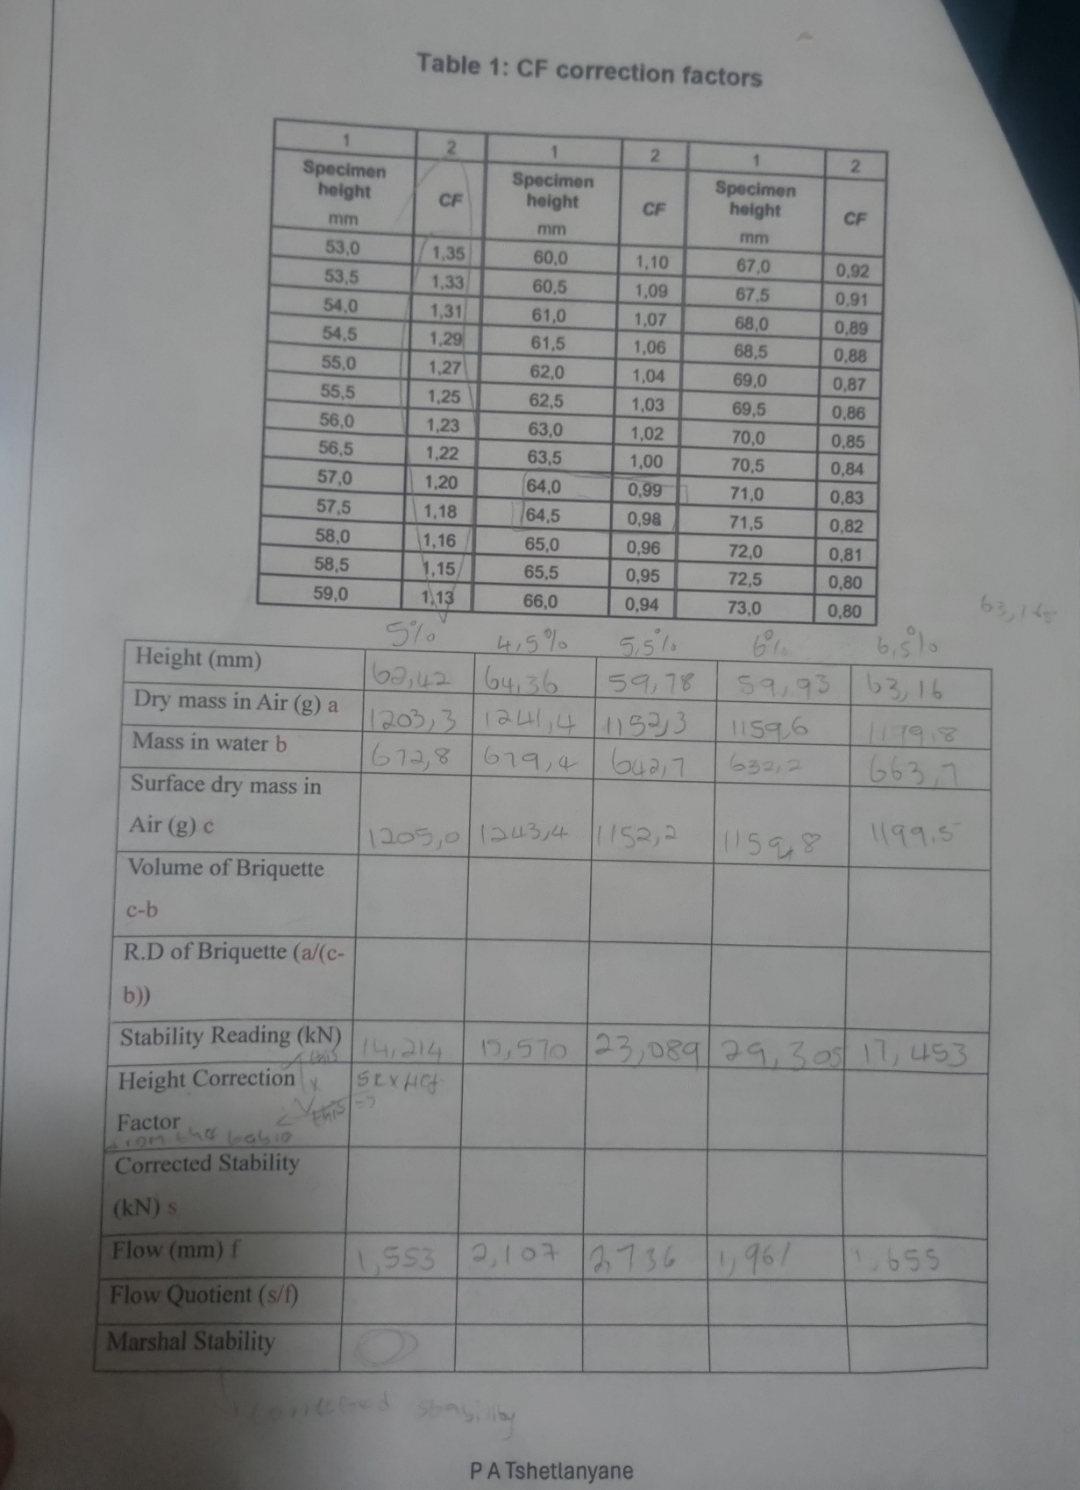 Table 1: CF correction factors
1 2 1 2 1 2
Specimen height mm CF Specimen height mm CF Specimen height mm CF
53,0 1,35 60,0 1,10 67,0 0,92
53,5 1,33 60,5 1,09 67,5 0,91
54,0 1,31 61,0 1,07 68,0 0,89
54,5 1,29 61,5 1,06 68,5 0,88
55,0 1,27 62,0 1,04 69,0 0,87
55,5 1,25 62,5 1,03 69,5 0,86
56,0 1,23 63,0 1,02 70,0 0,85
56,5 1,22 63,5 1,00 70,5 0,84
57,0 1,20 64,0 0,99 71,0 0,83
57,5 1,18 64,5 0,98 71,5 0,82
58,0 1,16 65,0 0,96 72,0 0,81
58,5 1,15 65,5 0,95 72,5 0,80
59,0 1,13 66,0 0,94 73,0 0,80
5% 4,5% 5,5% 6% 6,5%
Height (mm) 62,42 64,36 59,78 59,93 63,16
Dry mass in Air (g) a 1203,3 1241,4 1152,3 1159,6
Mass in water b 672,8 679,4 642,7 632,2 663,7
Surface dry mass in
Air (g) c 1205,0 1243,4 1152,2 1159,8 1199,5
Volume of Briquette
c-b
R.D of Briquette (a/(c-
b))
Stability Reading (kN) 14,214 15,570 23,089 29,305 17,453
Height Correction
Factor
from the table
Corrected Stability
(kN) s
Flow (mm) f 1,553 2,107 2,736 1,961 1,655
Flow Quotient (s/f)
Marshal Stability
stability
P A Tshetlanyane